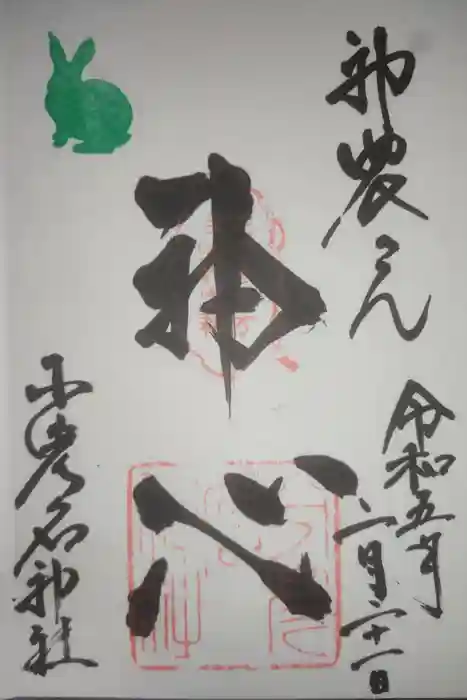 神農さん
令和五年
二月二十一日
神心
少彦名神社